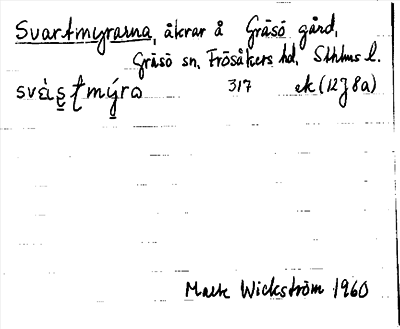 Svartmyrarna, åkrar å Gräsö gård,
Gräsö sn, Frösåkers hd, Sthlms l.
317 ek (12J8a)
Wickström 1960